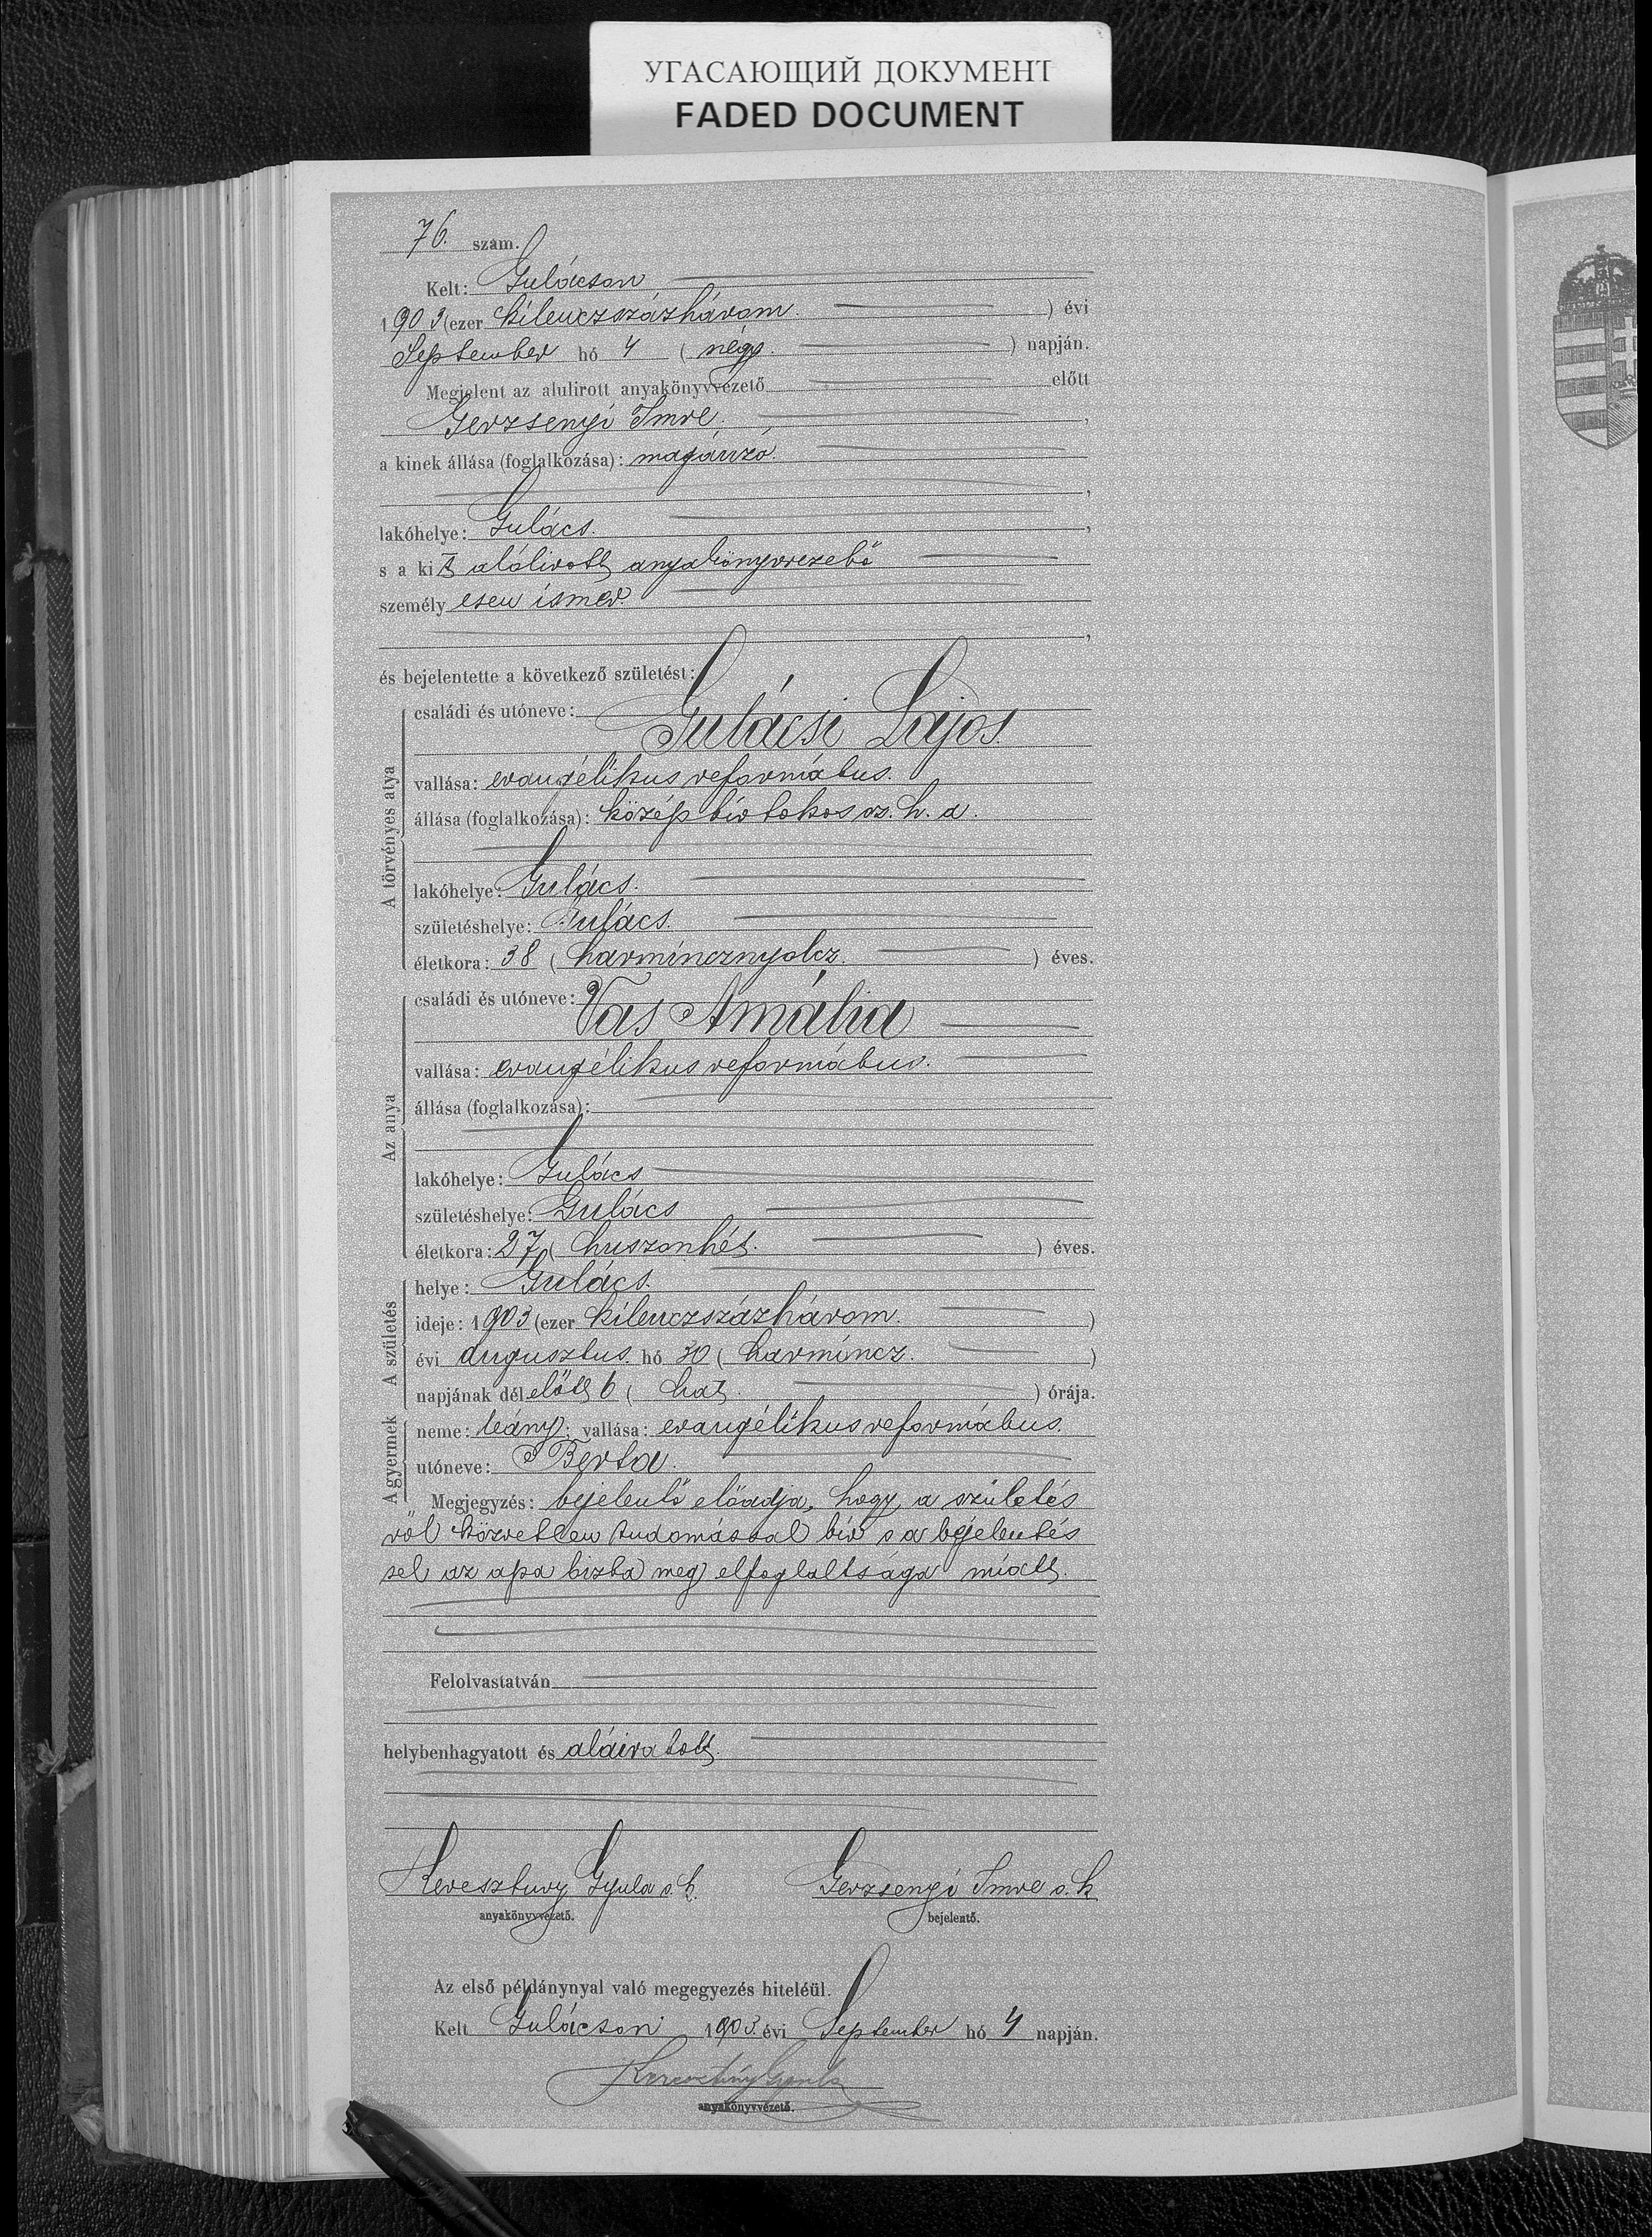 УГАСАЮЩИЙ ДОКУМЕНТ
FADED DOCUMENT
76. szám.
Kelt: Gulácson
1903 (ezer kilenczszázhárom.) évi
September hó 4 (négy.) napján.
Megjelent az alulirott anyakönyvvezető előtt
Gerzsenyi Imre,
a kinek állása (foglalkozása): magánzó,
,
lakóhelye: Gulács.,
s a kit alólirott anyakönyvvezető
személyesen ismer.
,
és bejelentette a következő születést:
A törvényes atya
családi és utóneve:
Gulácsi Lajos.
vallása: evangélikus református.
állása (foglalkozása): közép birtokos
lakóhelye: Gulács.
születéshelye: Gulács.
életkora: 38 (harmincznyolcz.) éves.
Az anya
családi és utóneve: Vas Amália
vallása: evangélikus református.
állása (foglalkozása):
lakóhelye: Gulács
születéshelye: Gulács
életkora: 27 (huszonhét.) éves.
A születés
helye: Gulács.
ideje: 1903 (ezer kilenczszázhárom.)
évi augusztus. hó 30 (harmincz.)
napjának délelőtt 6 (hat.) órája.
A gyermek
neme: leány; vallása: evangélikus református.
utóneve: Berta.
Megjegyzés: bejelentő előadja, hogy a születés
ről közvetlen tudomással bir s a bejelentés
sel az apa bizta meg elfoglaltsága miatt.
Felolvastatván
helybenhagyatott és aláiratott.
Keresztury Gyula s. k. Gerzsenyi Imre s. k.
anyakönyvvezető. bejelentő.
Az első példánynyal való megegyezés hiteléül.
Kelt Gulácson 1903. évi September hó 4 napján.
Keresztury Gyula
anyakönyvvezető.